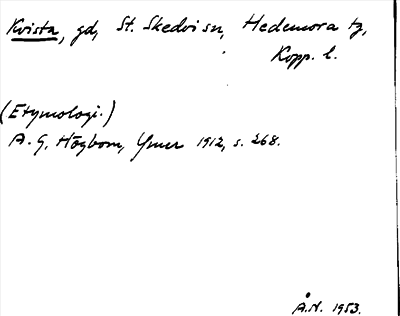 Kvista, gd, St. Skedvi sn, Hedemora tg,
Kopp. l.
(Etymologi.)
A. G. Högbom, Ymer 1912, s. 268.
Å.N. 1953.